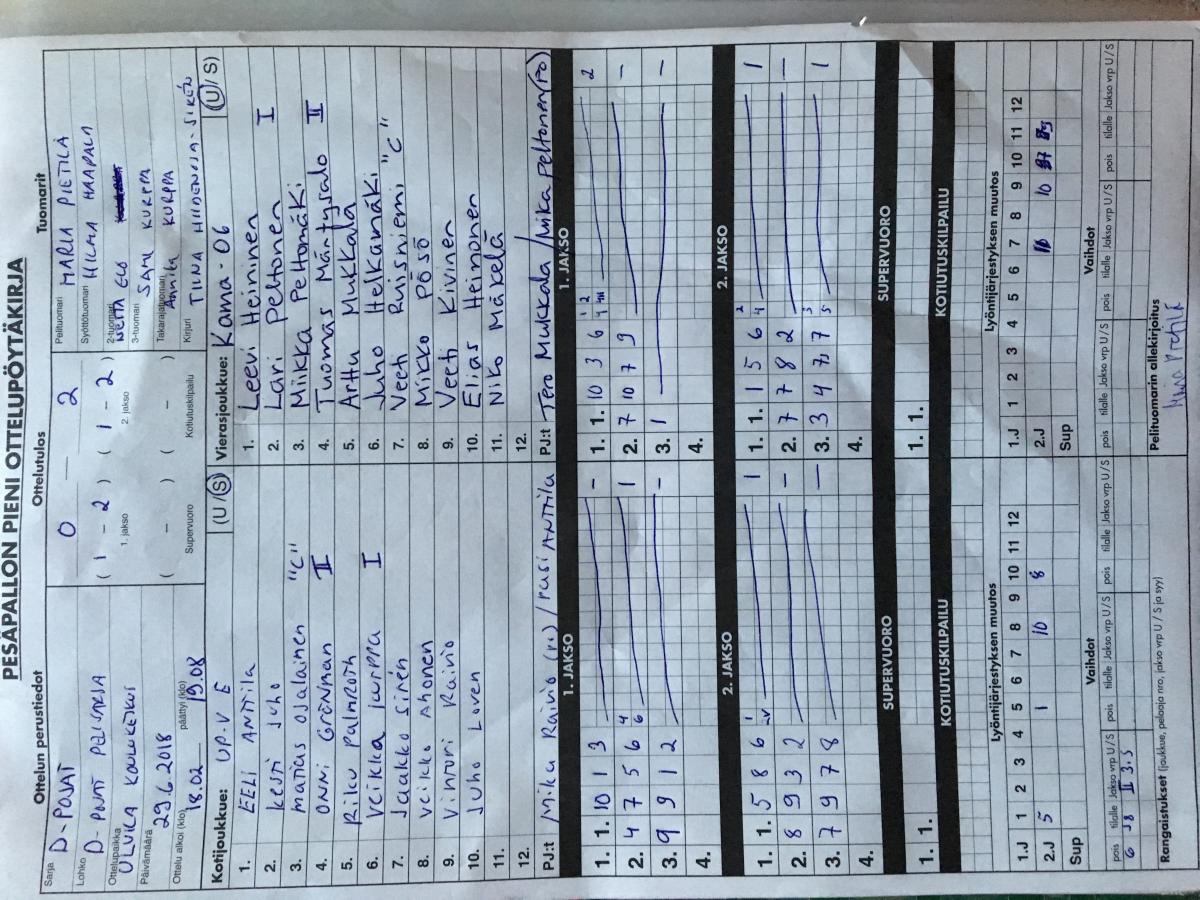 PESÄPALLON PIENI OTTELUPÖYTÄKIRJA
Ottelun perustiedot
Ottelutulos
Tuomarit
Sarja D-POJAT
Lohko D-POJAT
Ottelupaikka ULVILA
Päivämäärä 29.6.2018
Ottelu alkoi (klo) 18.02 päättyi (klo) 19.08
0 — 2
( 1 - 2 ) ( 1 - 2 )
1. jakso 2. jakso
( - ) ( - )
Supervuoro Kotiutuskilpailu
Pelituomari MARIA PIETILÄ
Syöttötuomari HILMA HAAPALA
2-tuomari NEITA ELO
3-tuomari SAMI KURPPA
Takarajatuomari Annika KURPPA
Kirjuri TIINA HIIDENOJA-SIKÉN
Kotijoukkue: UP-V E (U/S)
1. ELI ANTTILA
2. Kesti Juho
3. matias ojalainen "C"
4. ONNI GRÖNMAN II
5. Riku Palmroth
6. Veikka Jumppa I
7. Jaakko Sinén
8. Veikko Ahonen
9. Vinturi Rainio
10. Juho Loven
11.
12.
PJ:t Mika Rainio / Pasi ANTTILA
Vierasjoukkue: Kanma-06 (U/S)
1. Leevi Heiminen
2. Lari Peltonen I
3. Miikka Peltomäki
4. Tuomas Mäntysalo II
5. Arttu Mukkala
6. Juho Helkamäki
7. Veeti Ruisniemi "C"
8. Mikko Pösö
9. Veeti Kivinen
10. Elias Heinonen
11. Niko Mäkelä
12.
PJ:t Tero Mukkala / Mika Peltonen (PO)
1. JAKSO
1. 1. 10 1 3 -
2. 4 7 5 6 4 6 1
3. 9 9 1 2 -
4.
1. JAKSO
1. 1. 10 3 6 2
2. 7 10 7 9 -
3. 1 -
4.
2. JAKSO
1. 1. 5 8 6 1
2. 8 9 3 2 -
3. 7 9 7 8 -
4.
2. JAKSO
1. 1. 1 5 6 1
2. 7 7 8 2 -
3. 3 4 7 7 1
4.
SUPERVUORO
1. 1.
SUPERVUORO
1. 1.
KOTIUTUSKILPAILU
KOTIUTUSKILPAILU
Lyöntijärjestyksen muutos
1.J 1 2 3 4 5 6 7 8 9 10 11 12
2.J 5 1 10 8
Sup
Lyöntijärjestyksen muutos
1.J 1 2 3 4 5 6 7 8 9 10 11 12
2.J 10
Sup
Vaihdot
pois tilalle Jakso vrp U/S pois tilalle Jakso vrp U/S pois tilalle Jakso vrp U/S
6 II 3.S
Vaihdot
pois tilalle Jakso vrp U/S pois tilalle Jakso vrp U/S pois tilalle Jakso vrp U/S
Rangaistukset (joukkue, pelaaja nro, jakso vrp U / S ja syy)
Pelituomarin allekirjoitus